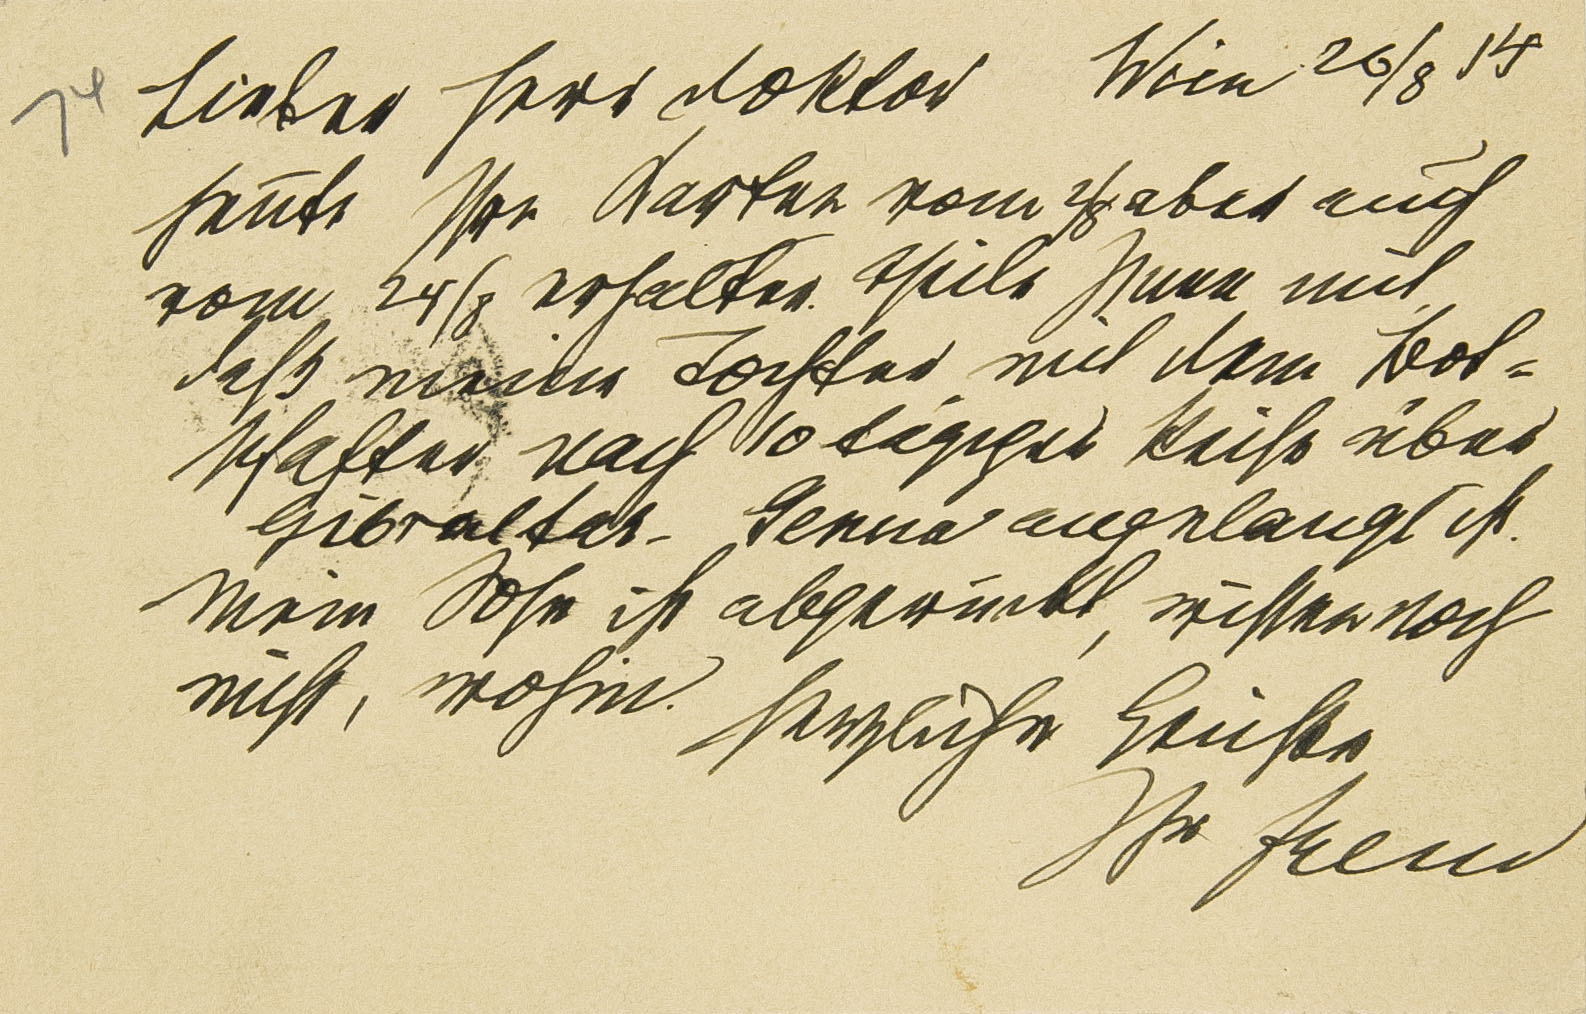 74
Lieber Herr Doktor Wien 26/8 14
heute Ihre Karten vom 2/8 aber auch
vom 24/8 erhalten. Theile Ihnen mit,
daß meine Tochter mit dem Bot=
schafter nach 10 tägiger Reise über
Gibraltar- Genua angelangt ist.
Mein Sohn ist abgerückt, wissen noch
nicht, wohin.
Herzliche Grüße
Ihr Freud